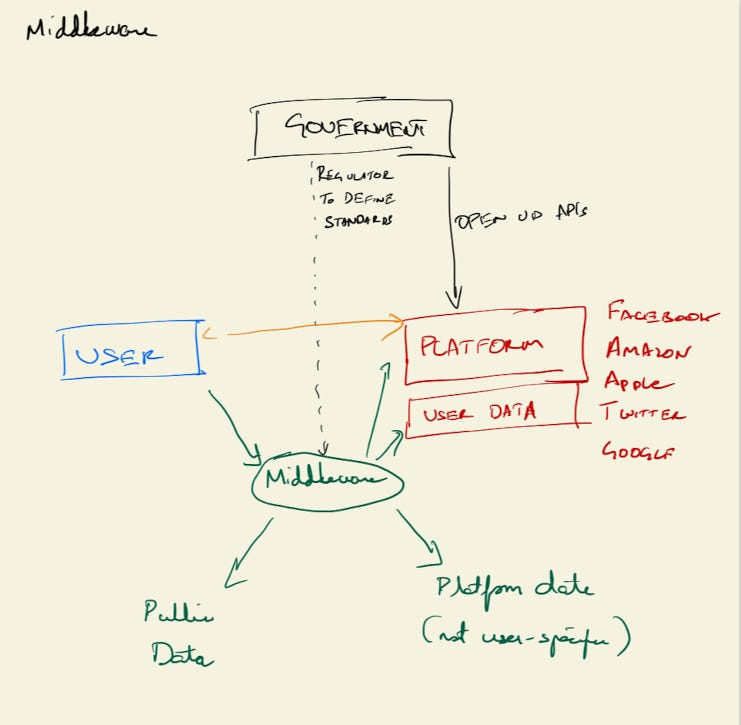 Middleware
GOVERNMENT
REGULATOR
TO DEFINE
STANDARDS
OPEN UP APIs
USER
PLATFORM
USER DATA
FACEBOOK
AMAZON
Apple
TWITTER
GOOGLE
Middleware
Public
Data
Platform data
(not user-specific)